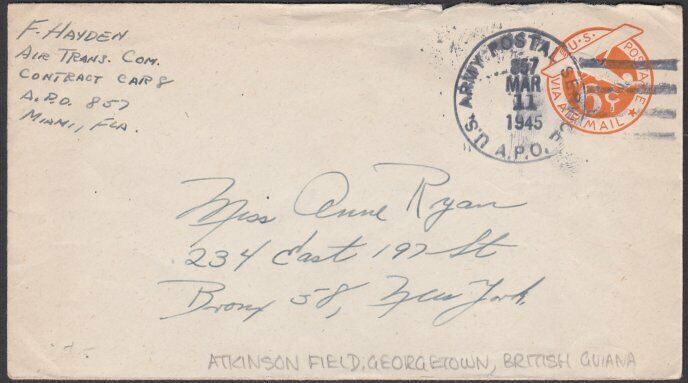 F. HAYDEN
AIR TRANS. COM.
CONTRACT CAR8
A.P.O. 857
MIAMI, FLA.
U.S. ARMY POSTAL SERVICE
A.P.O.
857
MAR
11
1945
U.S. POSTAGE
6¢
VIA AIR MAIL
Miss Anne Ryan
234 East 197 St
Bronx 58, New York.
ATKINSON FIELD, GEORGETOWN, BRITISH GUIANA